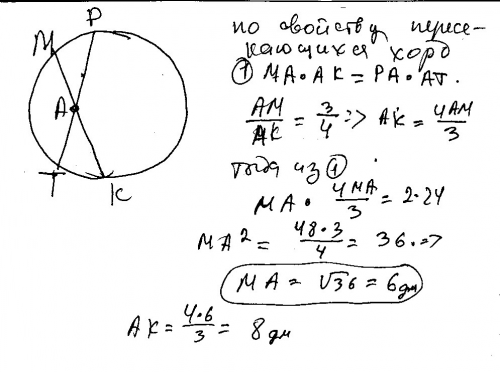 M P
A
T K
по свойству пересе-
кающихся хорд
① MA · AK = PA · AT.
AM/AK = 3/4 => AK = 4AM/3
тогда из ①
MA · 4MA/3 = 2·24
MA² = 48·3/4 = 36 =>
MA = √36 = 6 дм
AK = 4·6/3 = 8 дм